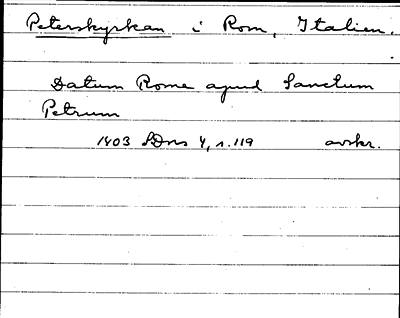 Peterskyrkan i Rom, Italien.
Datum Rome apud Sanctum
Petrum
1403 SDns 4, n. 119 avskr.